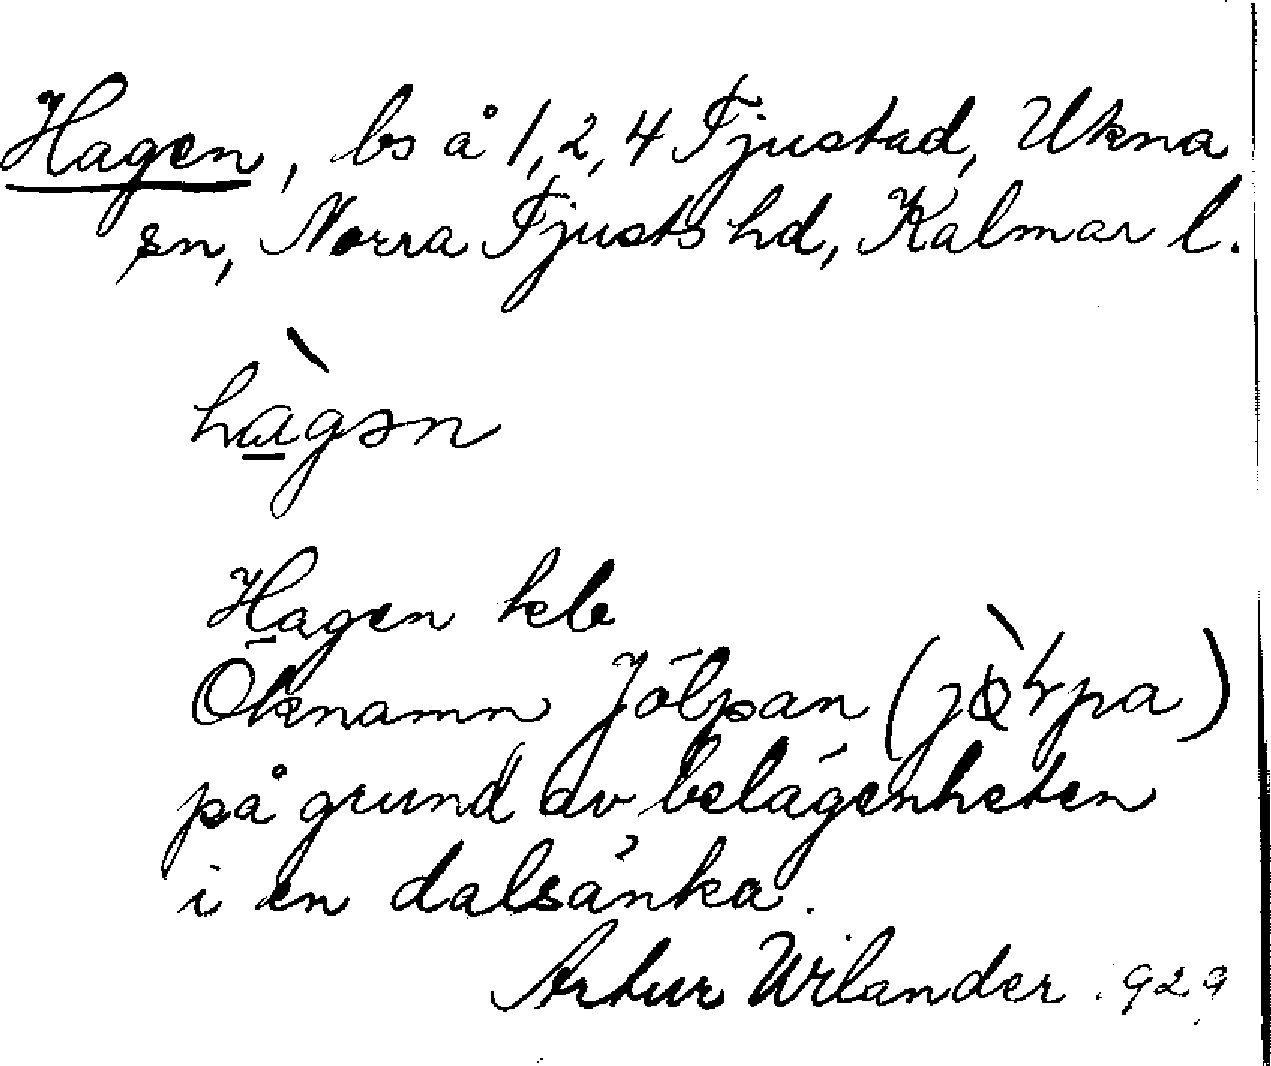 Hagen, bs å 1, 2, 4 Tjustad, Ukna
sn, Norra Tjusts hd, Kalmar l.
hàgən
Hagen kb
Öknamn Jölpan
på grund av belägenheten
i en dalsänka.
Artur Wilander . 929